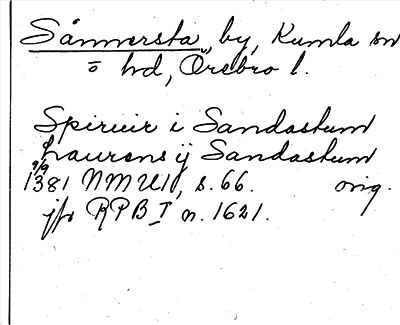 Sånnersta, by, Kumla sn
o hd, Örebro l.
Spiruir i Sandastum
Laurens ij Sandastum
9/9
1381 NMU1, s. 66. orig.
jfr RPB I n. 1621.